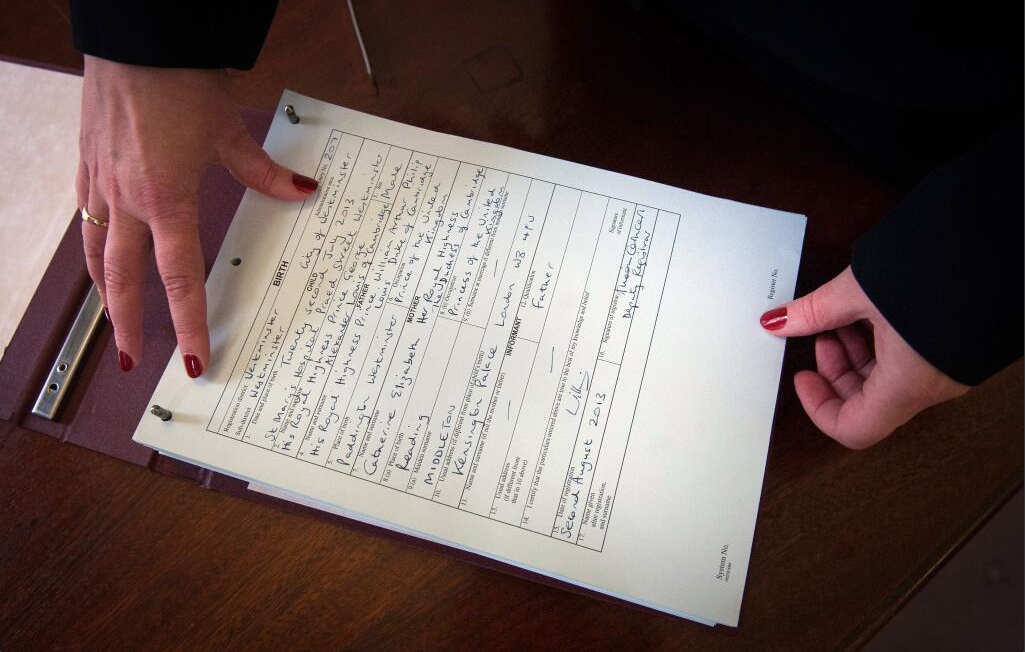 BIRTH
Entry No. 207
Registration district Westminster
Sub-district Westminster
City of Westminster
CHILD
1. Date and place of birth
Twenty second July 2013
St Mary's Hospital Praed Street Westminster
2. Name and surname
His Royal Highness Prince George
Alexander Louis of Cambridge
3. Sex Male
FATHER
4. Name and surname
His Royal Highness Prince William Arthur Philip
Louis Duke of Cambridge
5. Place of birth
Paddington Westminster
6. Occupation
Prince of the United
Kingdom
MOTHER
7. Name and surname
Catherine Elizabeth Her Royal Highness
The Duchess of Cambridge
8.(a) Place of birth
Reading
8.(b) Occupation
Princess of the United
Kingdom
9.(a) Maiden surname
MIDDLETON
9.(b) Surname at marriage if different from maiden surname
—
10. Usual address (if different from place of child's birth)
Kensington Palace London W8 4PU
INFORMANT
11. Name and surname (if not the mother or father)
—
12. Qualification
Father
13. Usual address
(if different from
that in 10 above)
—
14. I certify that the particulars entered above are true to the best of my knowledge and belief
Signature
of informant
15. Date of registration
Second August 2013
16. Signature of registrar
Deputy Registrar
17. Name given
after registration,
and surname
System No.
Register No.